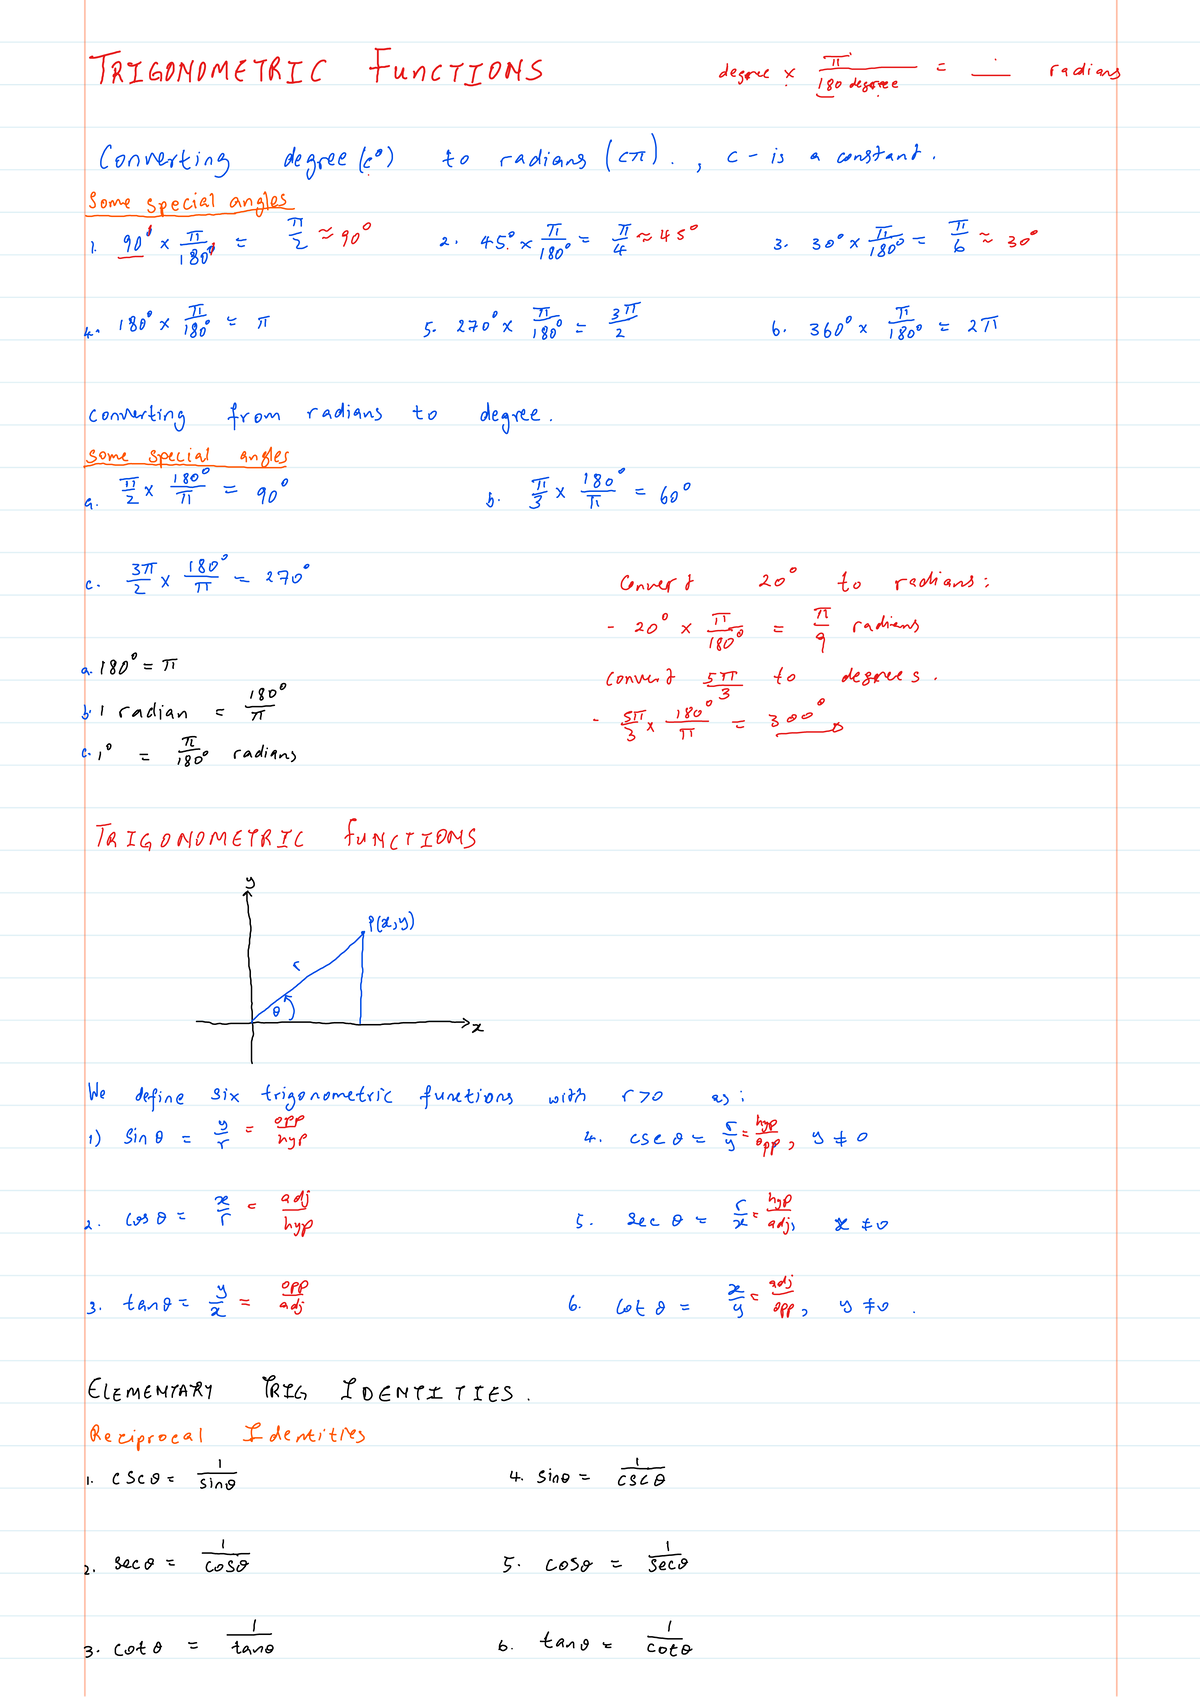 TRIGONOMETRIC FUNCTIONS
degree × π/180 degree = __ radians
Converting degree (c°) to radians (cπ)., c - is a constant.
Some special angles
1. 90° × π/180° = π/2 ≈ 90°
2. 45° × π/180° = π/4 ≈ 45°
3. 30° × π/180° = π/6 ≈ 30°
4. 180° × π/180° = π
5. 270° × π/180° = 3π/2
6. 360° × π/180° = 2π
converting from radians to degree.
Some special angles
a. π/2 × 180°/π = 90°
b. π/3 × 180°/π = 60°
c. 3π/2 × 180°/π = 270°
Convert 20° to radians:
- 20° × π/180° = π/9 radians
Convert 5π/3 to degrees.
- 5π/3 × 180°/π = 300°
a. 180° = π
b. 1 radian = 180°/π
c. 1° = π/180° radians
TRIGONOMETRIC FUNCTIONS
y
P(x,y)
r
θ
x
We define six trigonometric functions with r>0 as:
1) Sin θ = y/r = opp/hyp
4. csc θ = r/y = hyp/opp, y ≠ 0
2. cos θ = x/r = adj/hyp
5. sec θ = r/x = hyp/adj, x ≠ 0
3. tan θ = y/x = opp/adj
6. cot θ = x/y = adj/opp, y ≠ 0.
ELEMENTARY TRIG IDENTITIES.
Reciprocal Identities
1. cscθ = 1/sinθ
4. sinθ = 1/cscθ
2. secθ = 1/cosθ
5. cosθ = 1/secθ
3. cotθ = 1/tanθ
6. tanθ = 1/cotθ